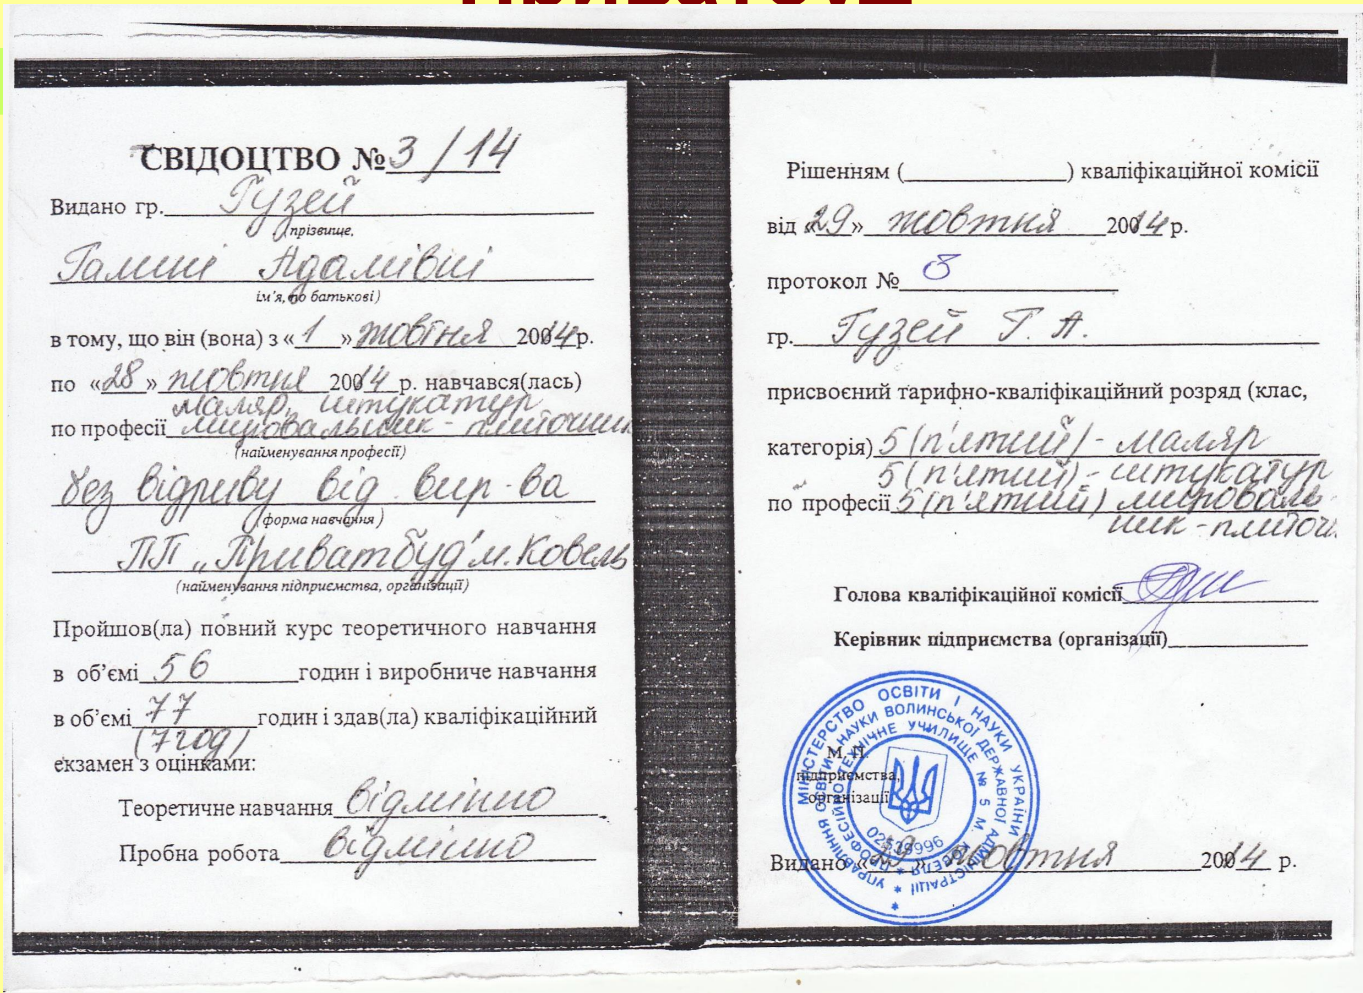 СВІДОЦТВО № 3/14
Видано гр. Гузей
прізвище,
Галині Адамівні
ім'я, по батькові)
в тому, що він (вона) з «1» жовтня 2014 р.
по «28» жовтня 2014 р. навчався(лась)
маляр, штукатур
по професії лицювальник - плиточник
(найменування професії)
без відриву від вир-ва
(форма навчання)
ПП „Приватбуд" м. Ковель
(найменування підприємства, організації)
Пройшов(ла) повний курс теоретичного навчання
в об'ємі 56 годин і виробниче навчання
в об'ємі 77 годин і здав(ла) кваліфікаційний
(7 год)
екзамен з оцінками:
Теоретичне навчання відмінно
Пробна робота відмінно
Рішенням (____________) кваліфікаційної комісії
від «29» жовтня 2014 р.
протокол № 8
гр. Гузей Г. А.
присвоєний тарифно-кваліфікаційний розряд (клас,
категорія) 5 (п'ятий) - маляр
5 (п'ятий) - штукатур
по професії 5 (п'ятий) лицюваль-
ник - плиточ
Голова кваліфікаційної комісії
Керівник підприємства (організації)
МІНІСТЕРСТВО ОСВІТИ І НАУКИ УКРАЇНИ
УПРАВЛІННЯ ОСВІТИ І НАУКИ ВОЛИНСЬКОЇ ДЕРЖАВНОЇ АДМІНІСТРАЦІЇ
ПРОФЕСІЙНО-ТЕХНІЧНЕ УЧИЛИЩЕ № 5 М. КОВЕЛЯ
02539996
М. П.
підприємства,
організації
Видано « » жовтня 2014 р.